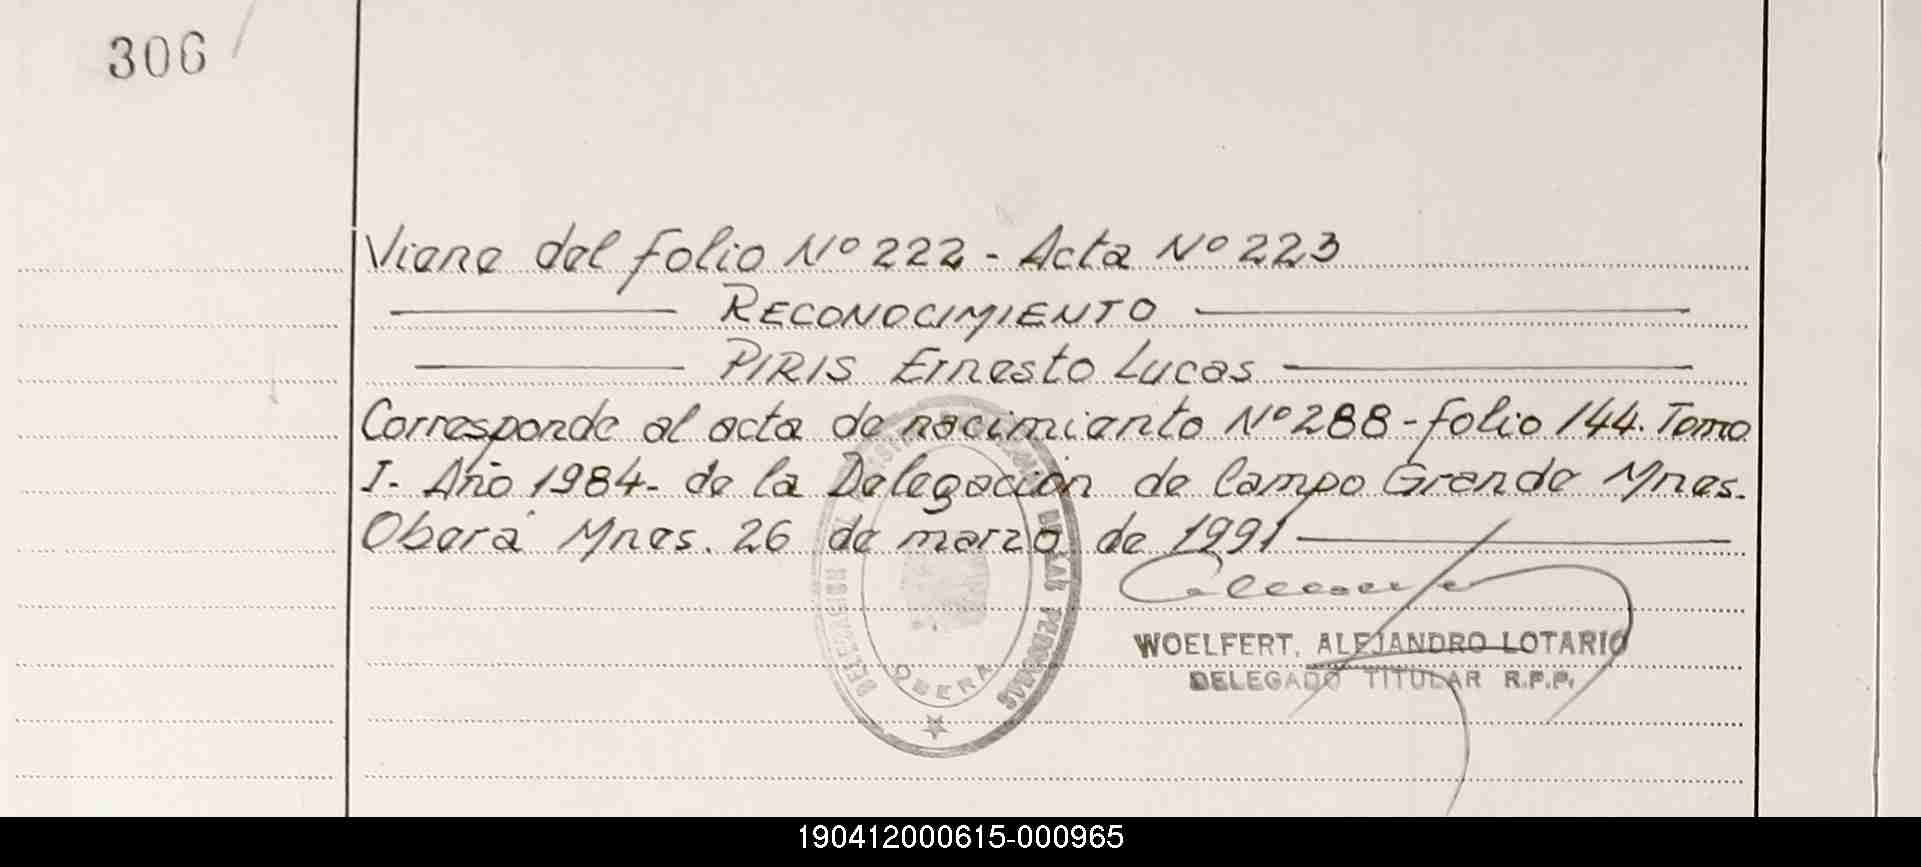 306
Viene del folio Nº 222 - Acta Nº 223
RECONOCIMIENTO
PIRIS Ernesto Lucas
Corresponde al acta de nacimiento Nº 288 - folio 144. Tomo
I. Año 1984 - de la Delegación de Campo Grande Mnes.
Oberá Mnes. 26 de marzo de 1991
DE LAS PERSONAS
OBERA
WOELFERT, ALEJANDRO LOTARIO
DELEGADO TITULAR R.P.P.
190412000615-000965